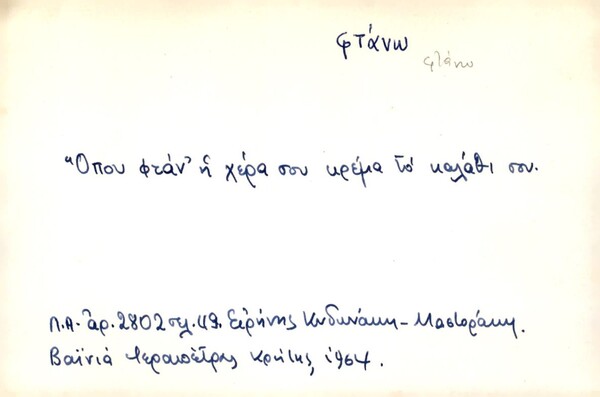 φτάνω
φτάνω
Ὅπου φτάν' ἡ χέρα σου κρέμα τό καλάθι σου.
Λ.Α. ἀρ. 2802 σελ. 49. Εἰρήνης Μαστοράκη.
Βαϊνιά Ἱεραπέτρης Κρήτης, 1964.